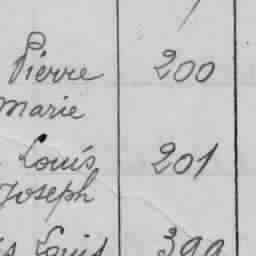 Pierre 200
Marie
Louis 201
Joseph
Louis 399